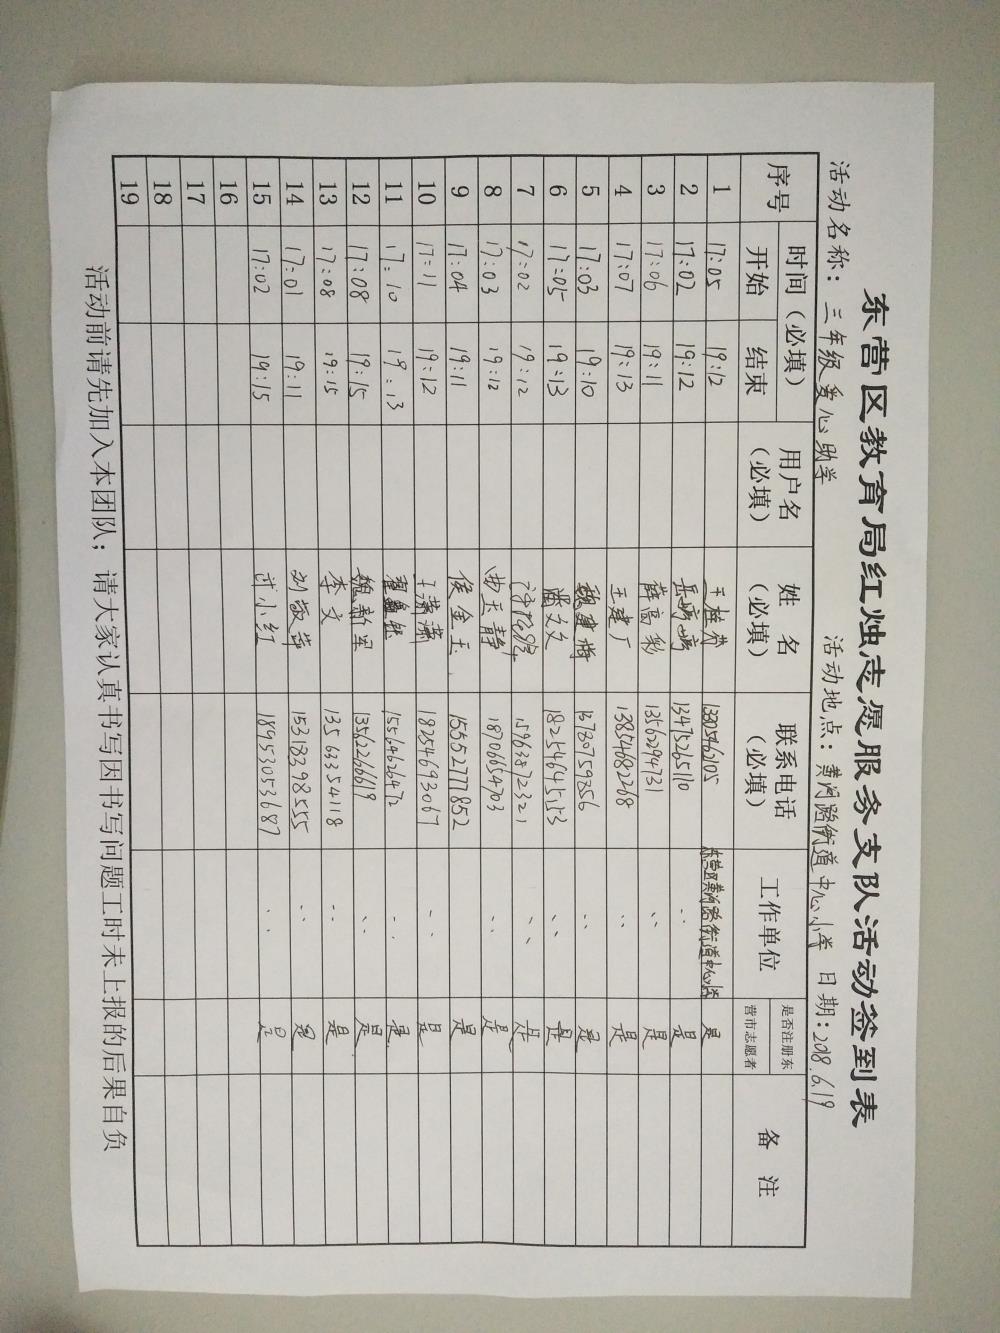 东营区教育局红烛志愿服务支队活动签到表
活动名称：三年级爱心助学 活动地点：黄河路街道中心小学 日期：2018.6.19
序号 时间（必填） 用户名（必填） 姓名（必填） 联系电话（必填） 工作单位 是否注册东营市志愿者 备注
开始 结束
1 17:05 19:12 13305462105 东营区黄河路街道中心小学 是
2 17:02 19:12 13475265110 〃 是
3 17:06 19:11 薛高彩 13562294731 〃 是
4 17:07 19:13 王建广 13854682268 〃 是
5 17:03 19:10 魏建梅 〃 是
6 17:05 19:13 潘文文 18254645153 〃 是
7 17:02 19:12 15963872321 〃 是
8 17:03 19:12 曲玉静 18706654703 〃 是
9 17:04 19:11 侯金玉 15552777852 是
10 17:11 19:12 王潇潇 18254693067 〃 是
11 17:10 19:13 15564636472 〃 是
12 17:08 19:15 魏新军 13522666119 〃 是
13 17:08 19:15 李文 13563354118 〃 是
14 17:01 19:11 刘敬华 15318398555 〃 是
15 17:02 19:15 许小红 18953053687 〃 是
16
17
18
19
活动前请先加入本团队；请大家认真书写因书写问题工时未上报的后果自负